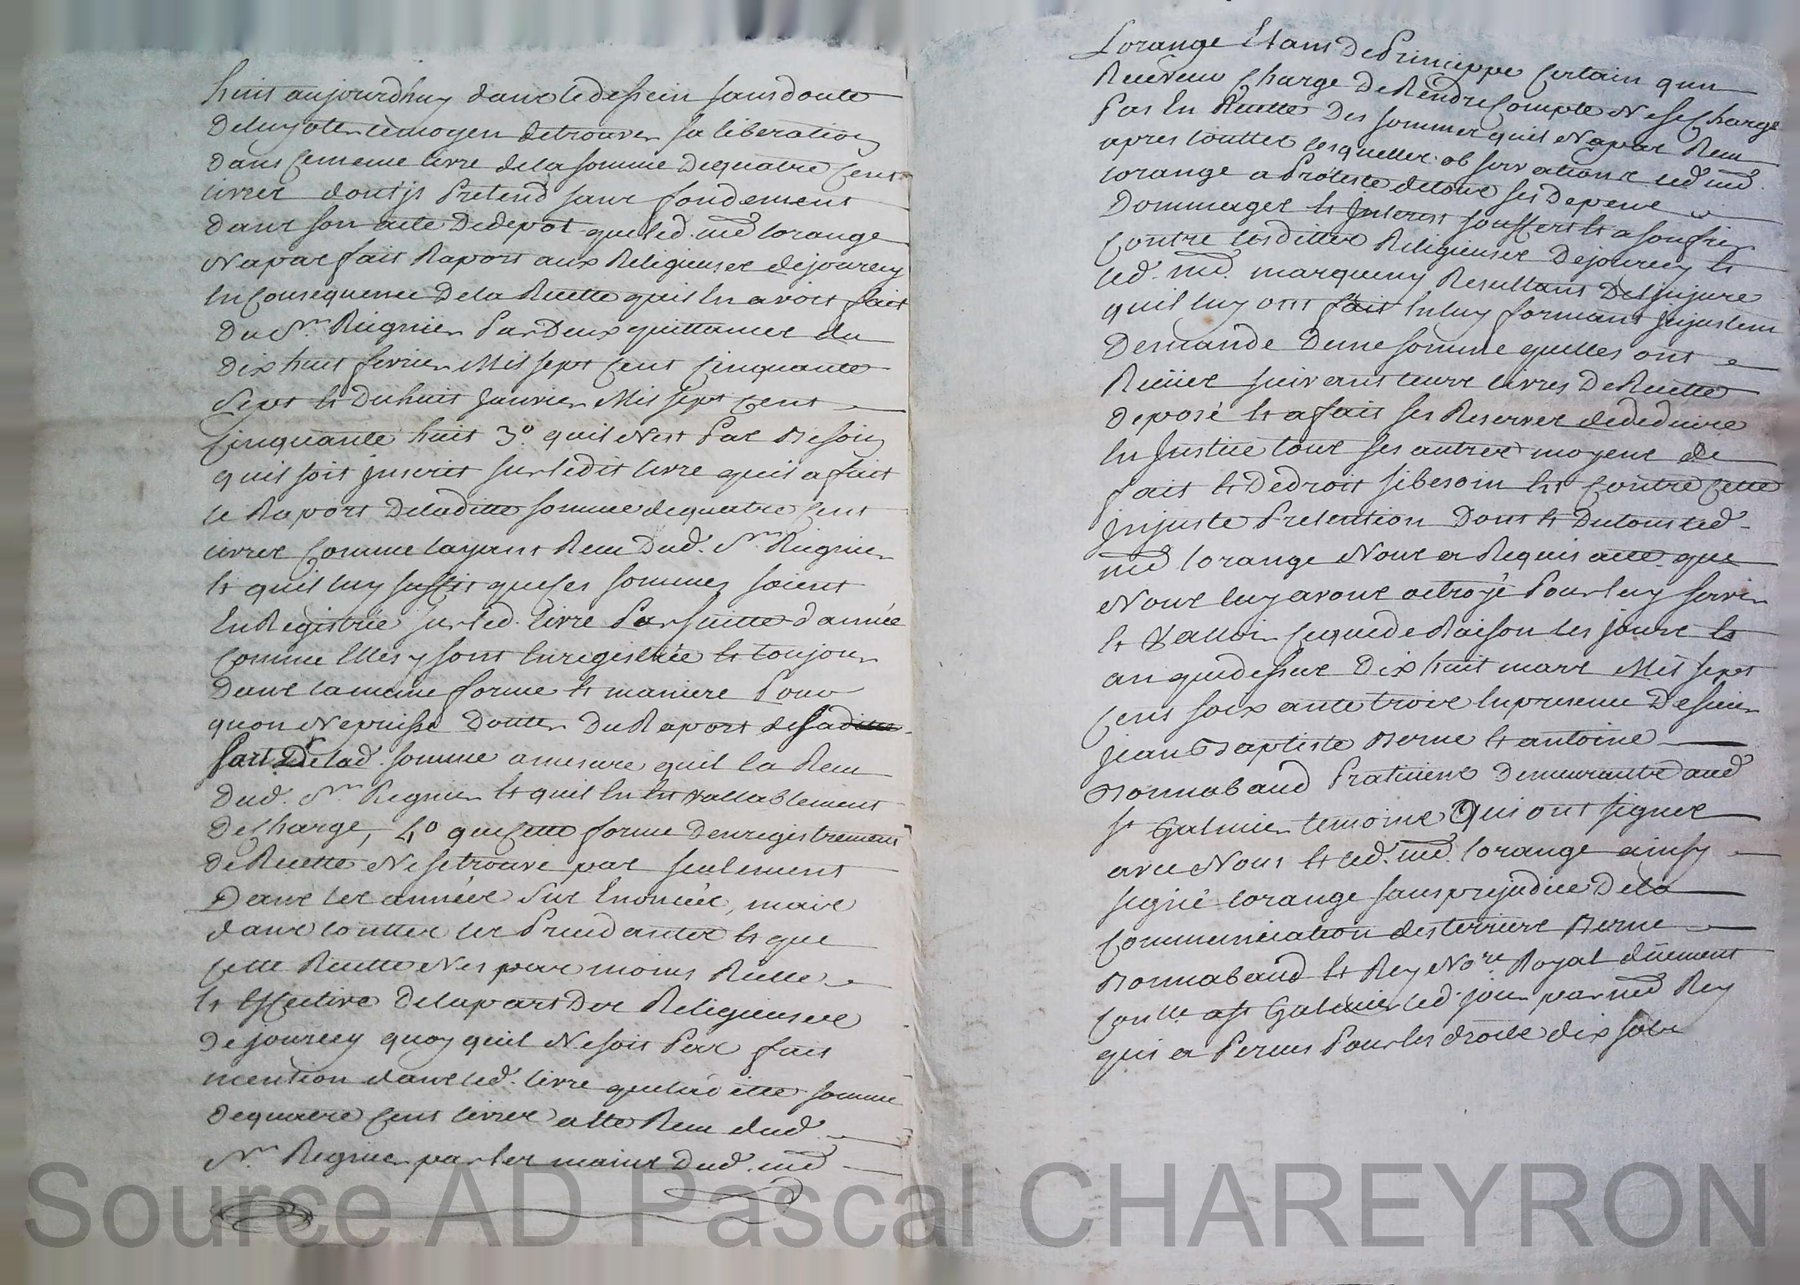 huit aujourdhuy dans le dessein sans doute
de luy oter le moyen de trouver sa liberation
dans ce meme livre de la somme de quatre cent
livres dont js pretend sans fondement
dans son acte de depot que led. md lorange
N apas fait Raport aux Religieuses de jourcey
En consequence de la Recette quil En avoit fait
du Sr. Regnier Par Deux quittances du
dix huit fevrier Mil sept cent cinquante
Sept Et Du huit Janvier Mil sept cent
cinquante huit 3o. quil N est Pas Besoin
quil soit jnscrit sur ledit livre quil a fait
le Raport De la ditte somme de quatre cent
livres comme layant Reçu Dud. Sr. Regnier
Et quil luy suffit que ses sommes soient
En Registrée sur led. livre Par suitte d'année
comme Elles y sont Enregistrée Et toujour
dans la meme forme Et maniere Pour
quon Ne puisse douter Du Raport de sa ditte
fait De lad. somme amesure quil la Reçu
Dud. Sr. Regnier Et quil En Est vallablement
decharge, 4o que cette forme denregistrement
de Recette Ne se trouve pas seulement
Dans les années Sus Enoncée, mais
dans touttes les Precedantes Et que
cette Recette N es pas moins Réelle
Et Effective De la part Des Religieuses
De jourcey quoy quil Ne soit Pas fait
mention dans led. livre que laditte somme
de quatre cent livres a Eté Reçu dud.
Sr. Regnier par les mains Dud. md
Lorange Etant De Principe certain quun
Receveur chargé De Rendre compte Ne se charge
Pas En Recette Des sommes quil Napas Reçu
apres touttes lesquelles observations led. md.
lorange a Protesté de tous ses Depens
Dommages Et Jnterest souffert Et a souffrir
contre lesdittes Religieuses De jourcey Et
led. md. marqueny Resultant Des Jnjure
quil luy ont fait En luy formant jnjustem
Demande Dune somme quelles ont
Reçües suivant leurs livres De Recette
deposé Et a fait ses Reserves de deduire
En Justice tous ses autres moyens de
fait Et De droit si besoin Est contre cette
jnjuste Pretention Dont Et Du tout led.
md lorange Nous a Requis acte que
Nous luy avons octroyé Pour luy servir
Et Valloir ce que de Raison les jours Et
an que dessus Dix huit mars Mil sept
cent soixante trois En presence De sieur
jean Baptiste Berne Et antoine
Bonnabaud Praticiens Demeurants aud
St Galmier temoins Qui ont signes
avec Nous Et led. md. lorange ainsy
signé lorange sans prejudice De la
communication des terriers Berne
Bonnabaud Et Rey Nore. Royal düement
Conllé a St Galmier led. jour par md Rey
qui a Perçus Pour les droits dix sols
Source AD Pascal CHAREYRON